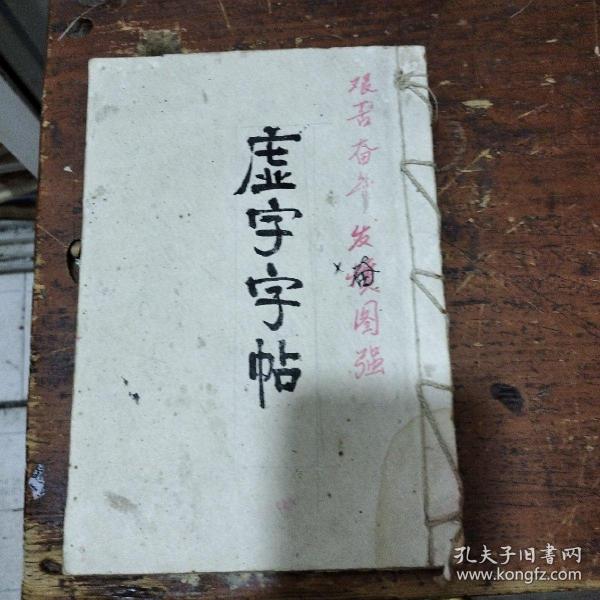 艰苦奋斗 发奋图强
虚字字帖
孔夫子旧書网
www.kongfz.com